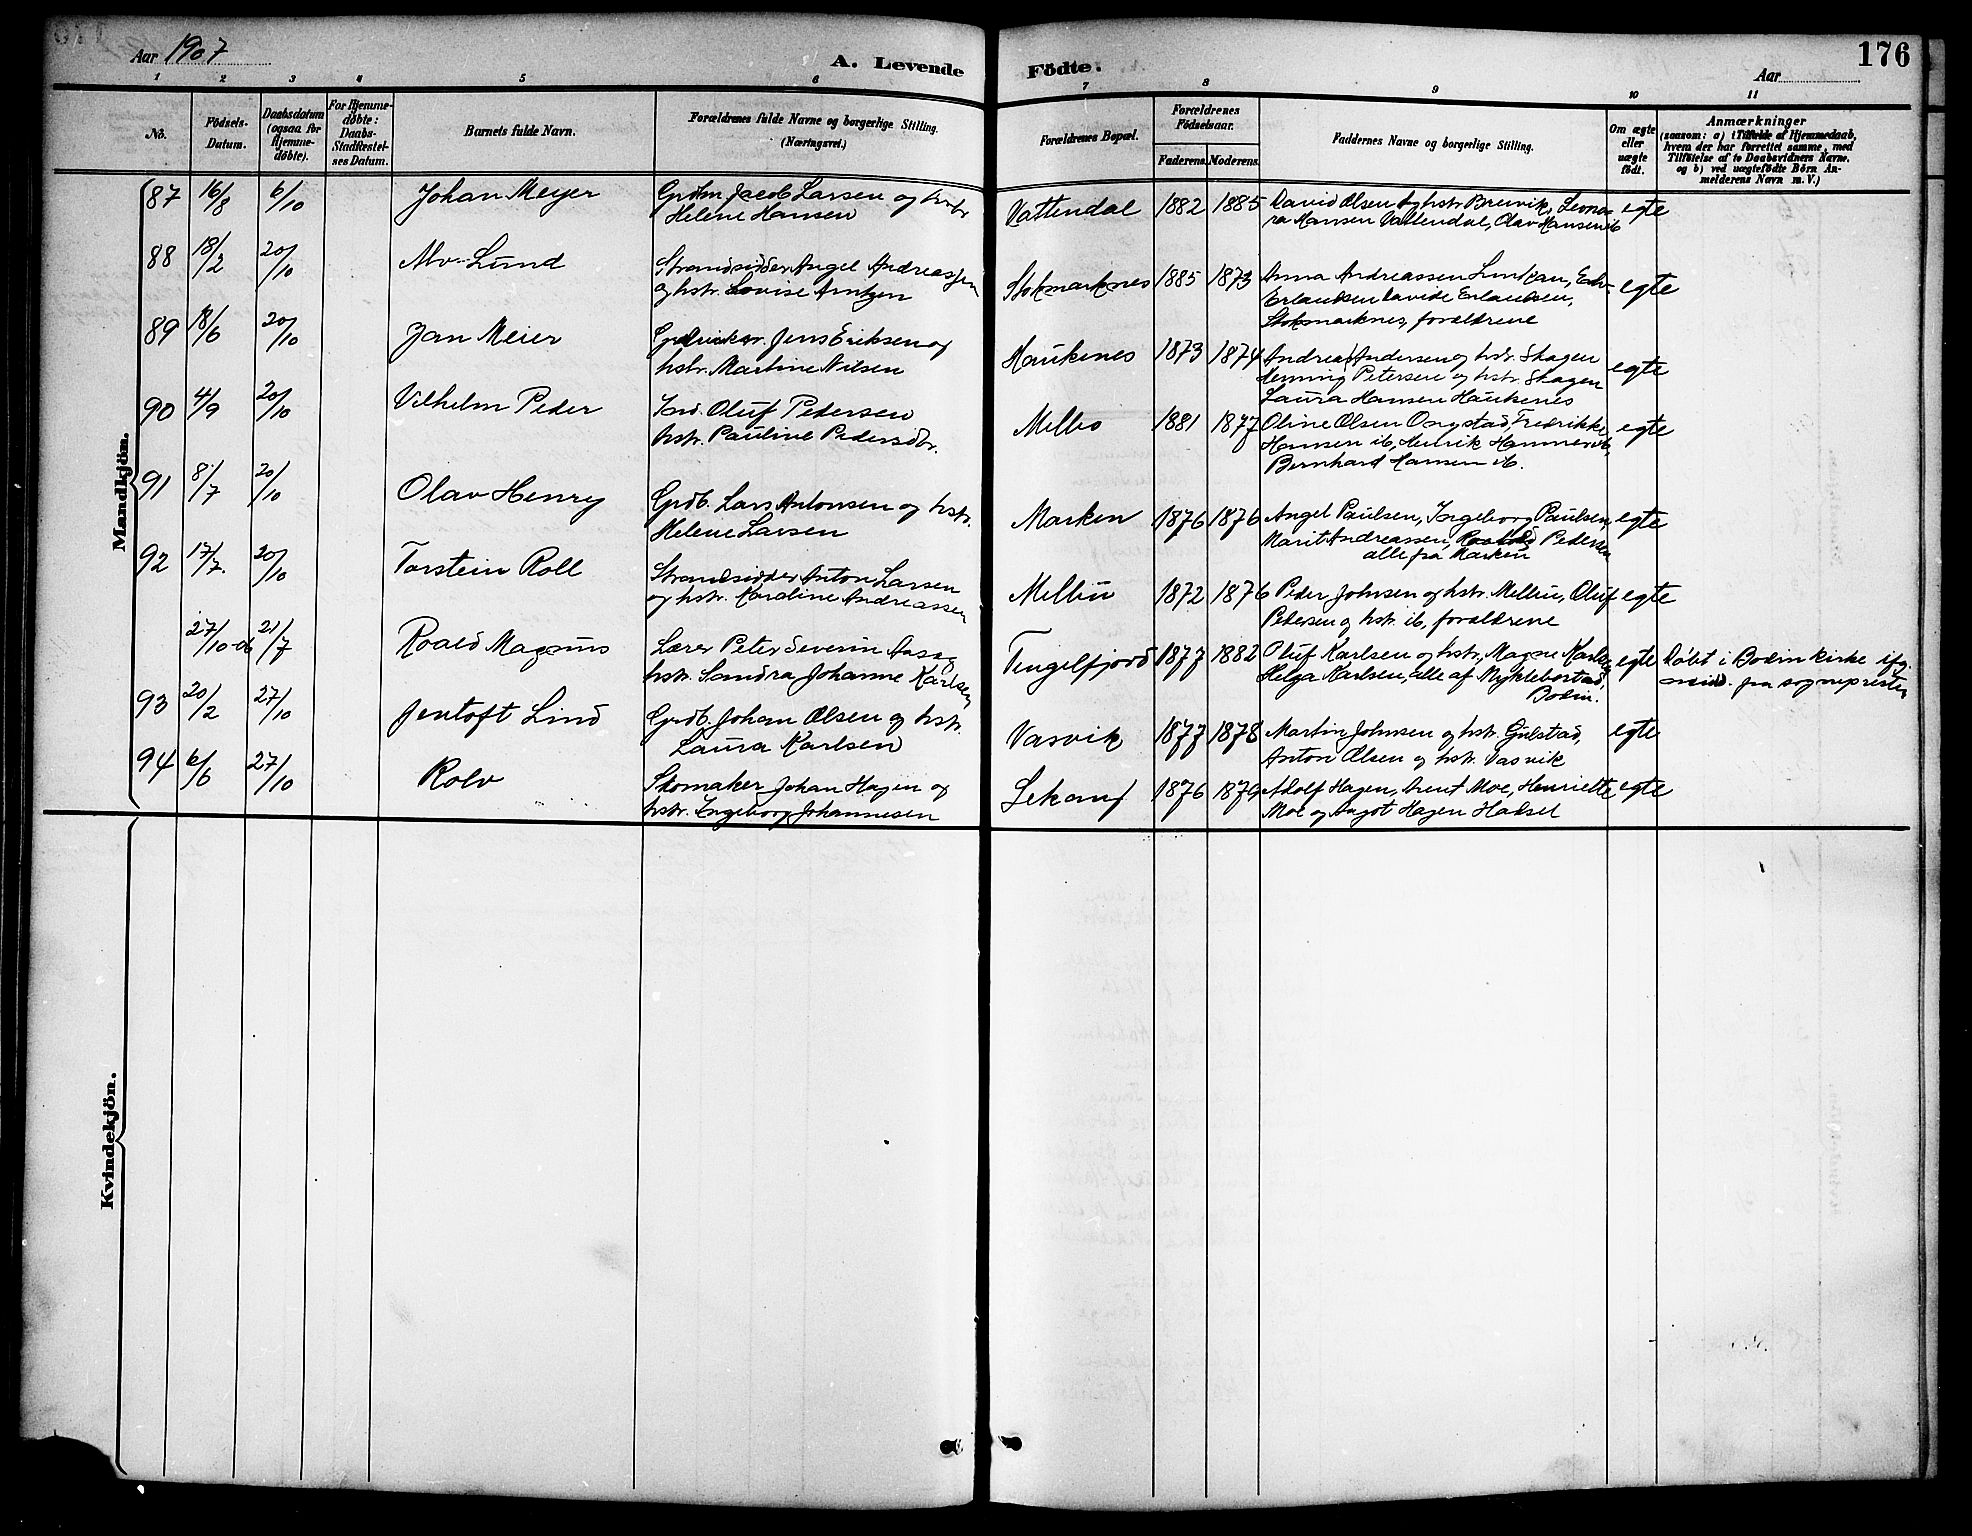 Aar 1907
A. Levende Födte.
176
Aar
1 2 3 4 5 6 7 8 9 10 11
No.
Födsels-Datum.
Daabsdatum (ogsaa for Hjemme-döbte).
For Hjemme-döbte: Daabs-Stadfæstel-ses Datum.
Barnets fulde Navn.
Forældrenes fulde Navne og borgerlige Stilling.
(Næringsvei.)
Forældrenes Bopæl.
Forældrenes Födselsaar.
Faderens. Moderens.
Faddernes Navne og borgerlige Stilling.
Om ægte eller uægte födt.
Anmærkninger
(saasom: a) i Tilfælde af Hjemmedaab,
hvem der har forrettet samme, med
Tilföielse af to Daabsvidners Navne.
og b) ved uægtefödte Börn An-
melderens Navn m. V.)
Mandkjön.
87 16/8 6/10 Johan Meyer Jacob Larsen og
Helene Hansen
Vattendal 1882 1885 David Olsen og hstr. Breivik,
Hansen Vattendal, Olav Hansen ib
egte
88 18/2 20/10 Alv Lund Strandsidder Angel Andreassen
og hstr. Lovise Arntzen
Stokmarknes 1885 1873 Anna Andreassen
Erlandsen Davide Erlandsen,
Stokmarknes, forældrene
egte
89 18/6 20/10 Jan Meier Jens Eriksen og
hstr. Martine Nilsen
Haukenes 1873 1874 Andreas Andersen og hstr. Skagen
Henning Petersen og hstr. Skagen
Laura Hansen Haukenes
egte
90 4/9 20/10 Vilhelm Peder Oluf Pedersen
hstr. Pauline Pedersdtr.
Melbo 1881 1877 Oline Olsen Fredrikke
Hansen ib, Henrik Hammer ib,
Bernhard Hansen ib.
egte
91 8/7 20/10 Olav Henry Grdb. Lars Antonsen og hstr.
Helene Larsen
Marken 1876 1876 Angel Paulsen, Ingeborg Paulsen
Marit Andreassen, Pedersen
alle fra Marken
egte
92 17/7 20/10 Torstein Roll Strandsidder Anton Larsen
og hstr. Karoline Andreassen
Melbu 1872 1876 Peder Johnsen og hstr. Melbu, Oluf
Petersen og hstr. ib, forældrene
egte
27/10-06 21/7 Roald Magnus Lærer Peter Severin Aas og
hstr. Sandra Johanne Karlsen
Tengelfjord 1877 1882 Oluf Karlsen og hstr., Magne Karlsen
Helga Karlsen, alle af Myklebostad,
Bodin.
egte Döbt i Bodin kirke ifg.
fra sognepresten
93 20/2 27/10 Jentoft Lind Grdb. Johan Olsen og hstr.
Laura Karlsen
Vasvik 1877 1878 Martin Johnsen og hstr. Gulstad,
Anton Olsen og hstr. Vasvik
egte
94 6/6 27/10 Rolv Skomaker Johan Hagen og
hstr. Ingeborg Johannesen
1876 1879 Adolf Hagen, Arent Moe, Henriette
Moe og Aagot Hagen Hadsel
egte
Kvindekjön.